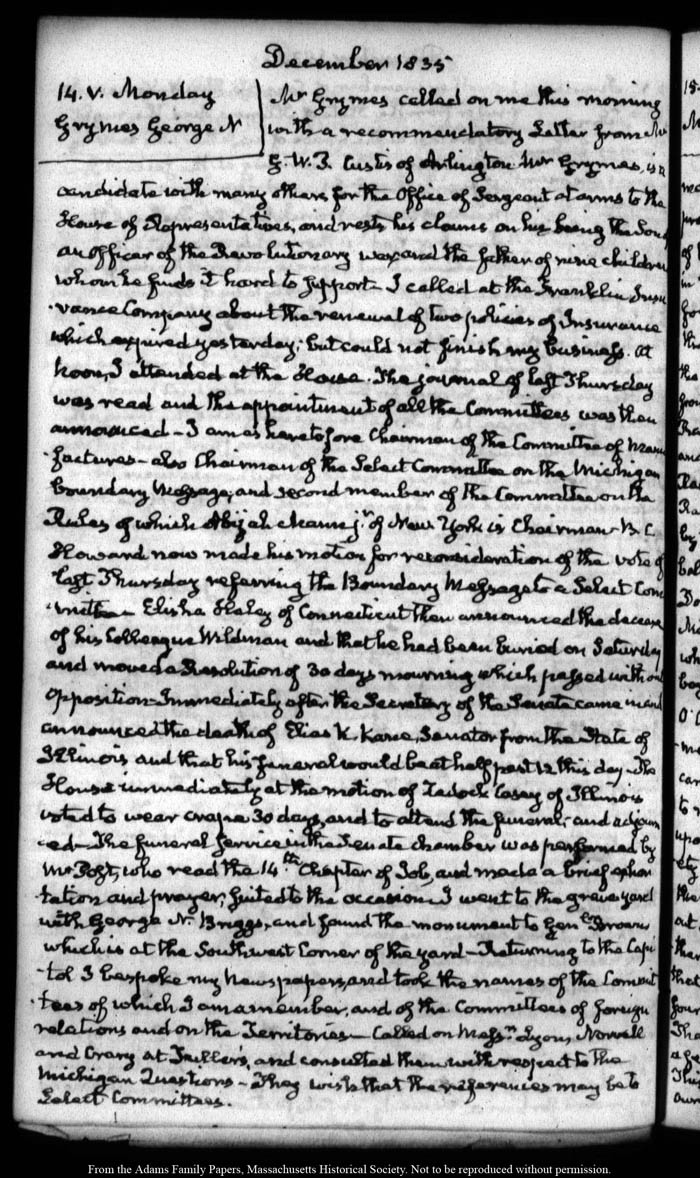 December 1835
14. V. Monday
Grymes George N
Mr Grymes called on me this morning
with a recommendatory Letter from Mr
G. W. P. Custis of Arlington Mr Grymes, is a
candidate with many others for the Office of Sergeant at arms to the
House of Representatives, and rests his claims on his being the Son of
an officer of the Revolutionary war, and the father of nine children
whom he finds it hard to support— I called at the Franklin Insu-
-rance Company about the renewal of two policies of Insurance
which expired yesterday; but could not finish my business. At
noon, I attended at the House. The journal of last Thursday
was read and the appointment of all the Committees was then
announced— I am as heretofore Chairman of the Committee of Manu-
-factures— also Chairman of the Select Committee on the Michigan
boundary Message, and second member of the Committee on the
Rules of which Abijah Mann jr. of New York is Chairman— B. C.
Howard now made his motion for reconsideration of the vote of
last Thursday referring the Boundary Message to a Select Com-
-mittee— Elisha Haley of Connecticut then announced the decease
of his Colleague Wildman and that he had been buried on Saturday
and moved a Resolution of 30 days mourning which passed without
opposition— Immediately after the Secretary of the Senate came in and
announced the death of Elias K. Kane, Senator from the State of
Illinois and that his funeral would be at half past 12 this day— The
House immediately at the motion of Zadock Casey of Illinois
voted to wear crape 30 days, and to attend the funeral; and adjourn-
-ed— The funeral Service in the Senate chamber was performed by
Mr Post, who read the 14th Chapter of Job, and made a brief exhor-
-tation and prayer, suited to the occasion— I went to the grave yard
with George N. Briggs, and found the monument to Genl. Brown
which is at the Southwest Corner of the yard— Returning to the Capi-
-tol I bespoke my Newspapers, and took the names of the Commit-
-tees of which I am a member, and of the Committees of foreign
relations and on the Territories— Called on Messrs. Lyon, Norvell
and Crary at Fullers, and consulted them with respect to the
Michigan Questions— They wish that the references may be to
Select Committees.
From the Adams Family Papers, Massachusetts Historical Society. Not to be reproduced without permission.